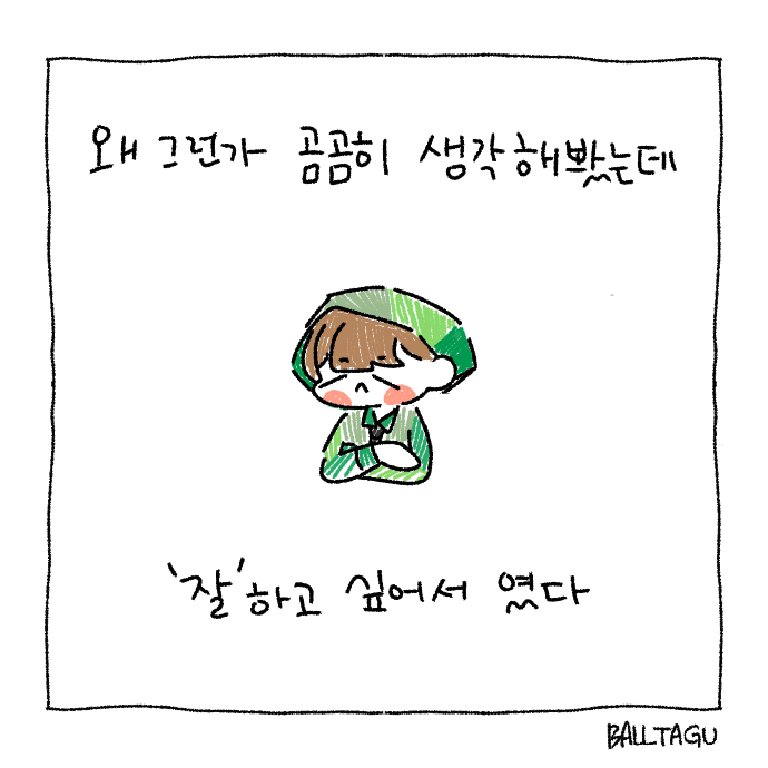 왜 그런가 곰곰히 생각해봤는데
'잘'하고 싶어서 였다
BALLTAGU